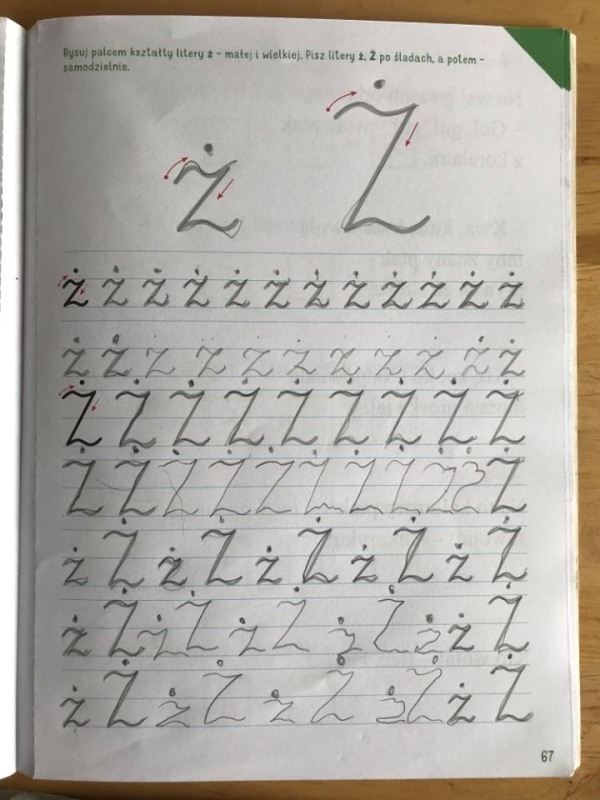 Rysuj palcem kształty litery ż – małej i wielkiej. Pisz litery ż, Ż po śladach, a potem –
samodzielnie.
ż Ż
ż ż ż ż ż ż ż ż ż ż ż ż
ż ż ż ż ż ż ż ż ż ż ż
Ż Ż Ż Ż Ż Ż Ż Ż Ż
Ż Ż Ż Ż Ż Ż Ż Ż Ż Ż Ż
ż Ż ż Ż ż Ż ż Ż ż Ż
ż Ż ż Ż ż Ż ż Ż ż ż Ż
ż Ż ż Ż ż Ż ż Ż ż Ż
67